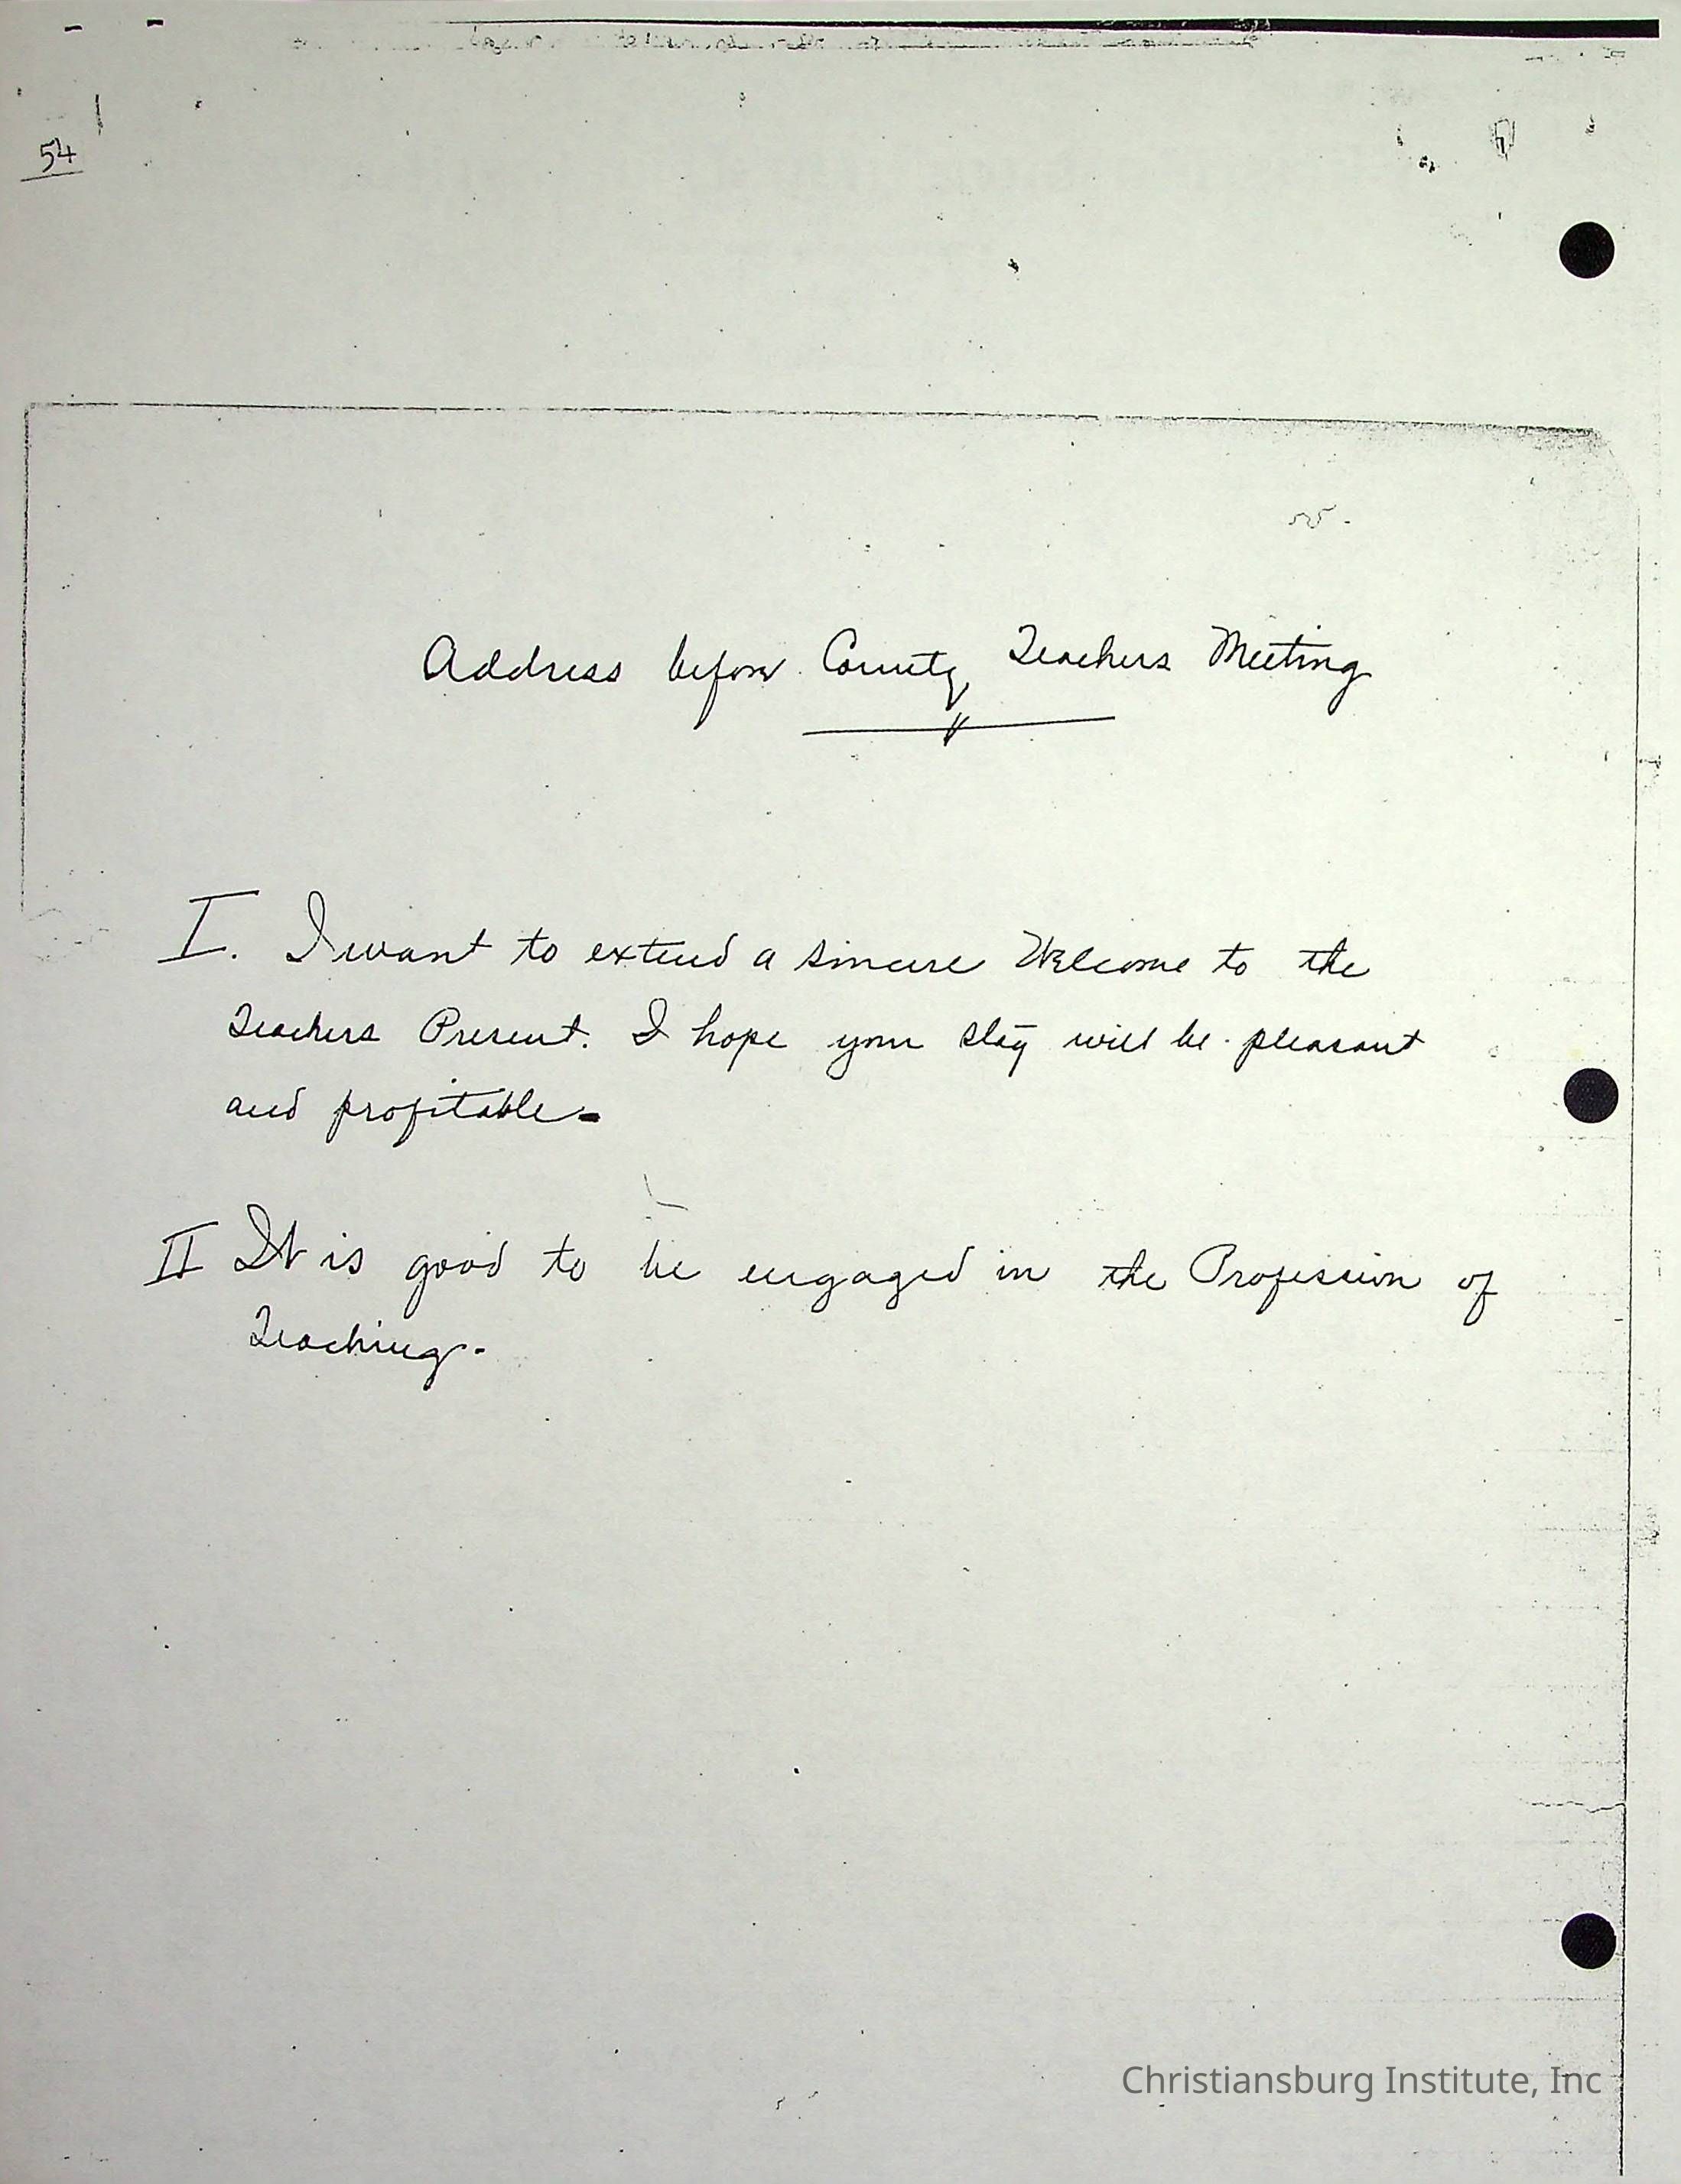 54
Address before County Teachers Meeting
I. I want to extend a sincere Welcome to the
Teachers Present. I hope your stay will be pleasant
and profitable-
II It is good to be engaged in the Profession of
Teaching.-
Christiansburg Institute, Inc